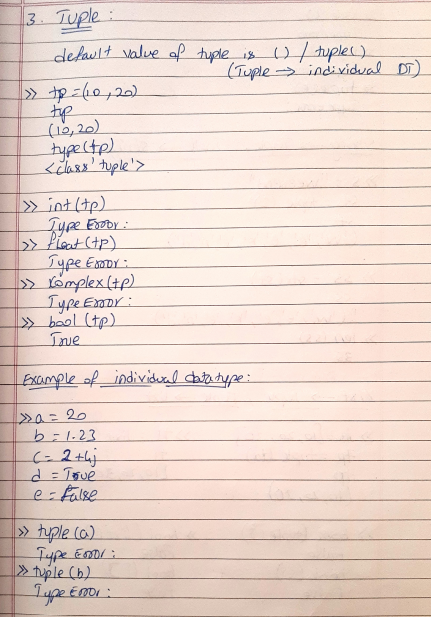 3. Tuple :
default value of tuple is () / tuple()
(Tuple → individual DT)
>> tp = (10, 20)
tp
(10,20)
type(tp)
<class 'tuple'>
>> int(tp)
Type Error:
>> float(tp)
Type Error:
>> Komplex(tp)
Type Error:
>> bool (tp)
True
Example of individual datatype:
>> a = 20
b = 1.23
c = 2+4j
d = True
e = False
>> tuple (a)
Type Error :
>> tuple (b)
Type Error :